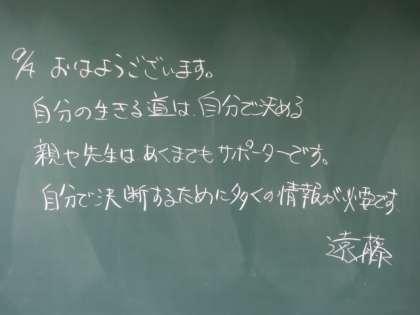 9/4 おはようございます。
自分の生きる道は、自分で決める
親や先生はあくまでもサポーターです。
自分で決断するために多くの情報が必要です
遠藤